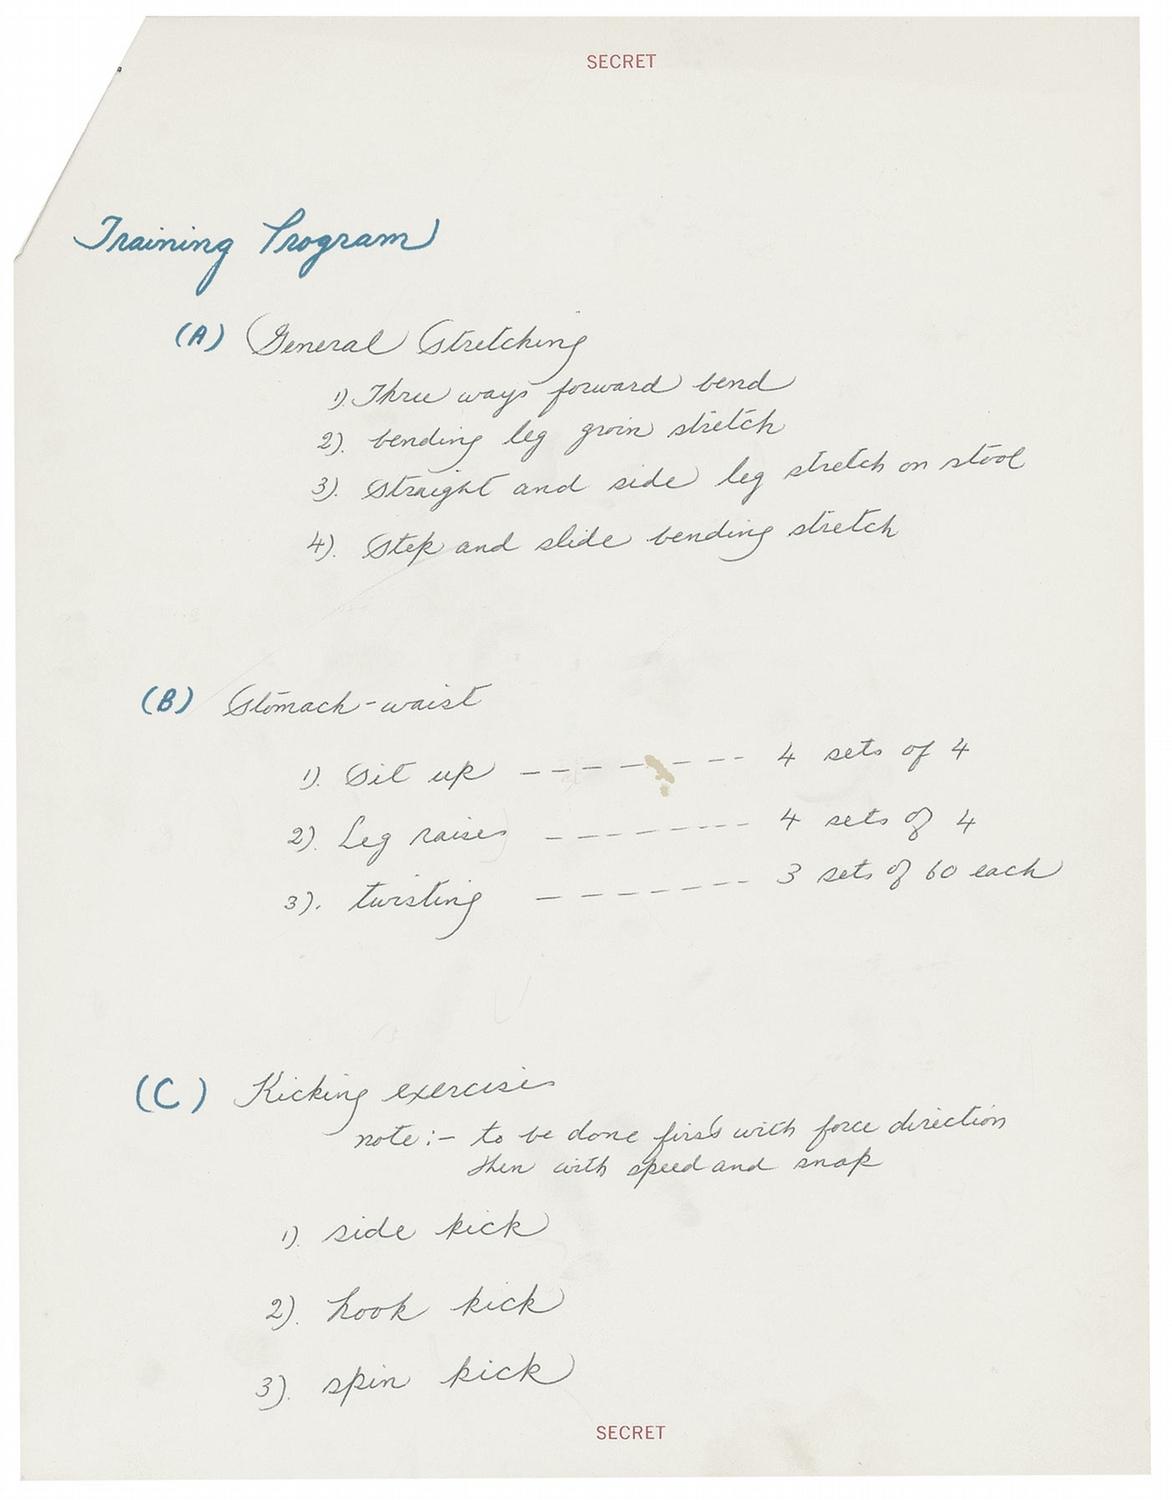 SECRET
Training Program
(A) General Stretching
1). Three ways forward bend
2). bending leg groin stretch
3). Straight and side leg stretch on stool
4). Step and slide bending stretch
(B) Stomach-waist
1). Sit up -------- 4 sets of 4
2). Leg raises -------- 4 sets of 4
3). twisting ------- 3 sets of 60 each
(C) Kicking exercises
note:- to be done first with force direction
then with speed and snap
1). side kick
2). hook kick
3). spin kick
SECRET